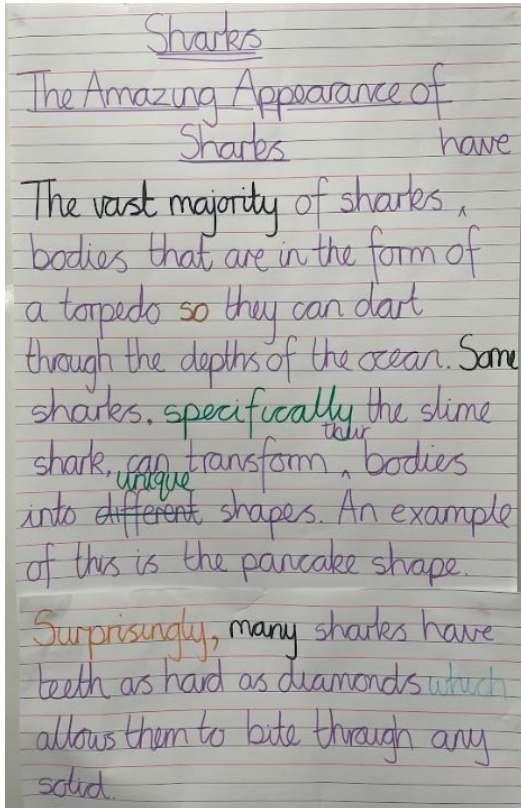 Sharks
The Amazing Appearance of
Sharks have
The vast majority of sharks ‸
bodies that are in the form of
a torpedo so they can dart
through the depths of the ocean. Some
sharks, specifically the slime
their
shark, can transform ‸ bodies
unique
into different shapes. An example
of this is the pancake shape.
Surprisingly, many sharks have
teeth as hard as diamonds which
allows them to bite through any
solid.